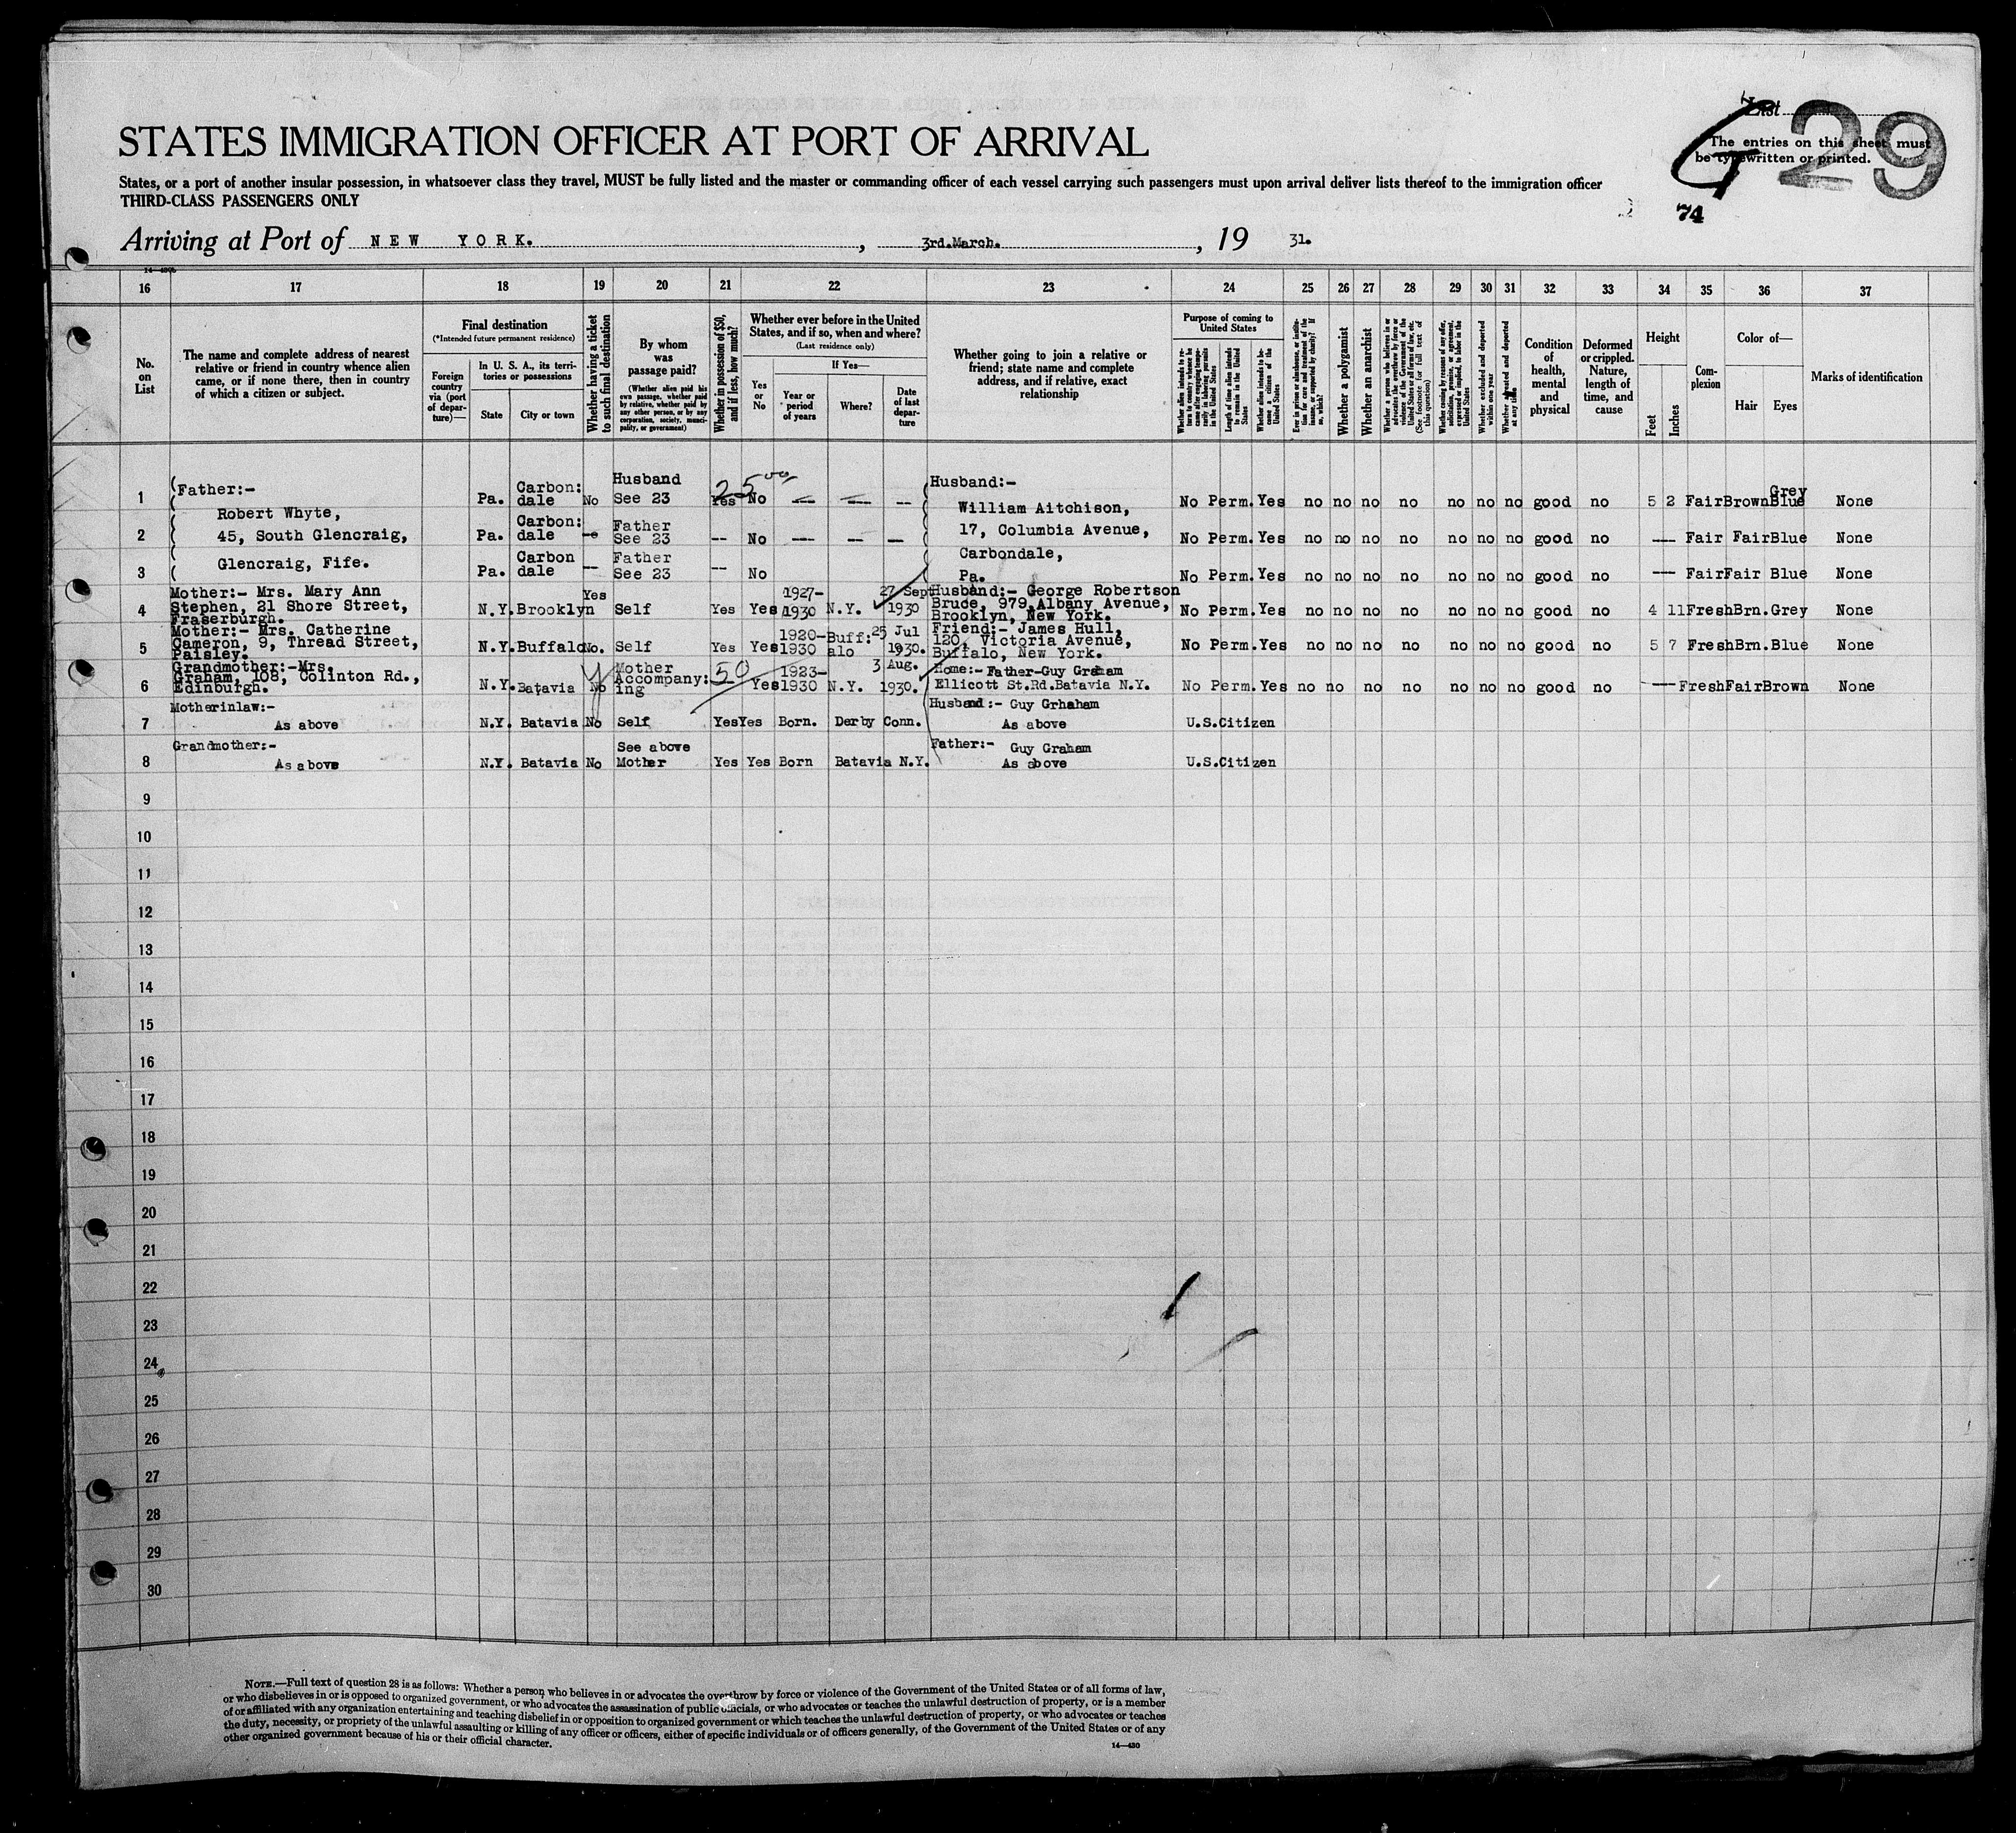 List
G 29
The entries on this sheet must
be typewritten or printed.
74
STATES IMMIGRATION OFFICER AT PORT OF ARRIVAL
States, or a port of another insular possession, in whatsoever class they travel, MUST be fully listed and the master or commanding officer of each vessel carrying such passengers must upon arrival deliver lists thereof to the immigration officer
THIRD-CLASS PASSENGERS ONLY
Arriving at Port of NEW YORK. , 3rd.March. , 19 31.
16 17 18 19 20 21 22 23 24 25 26 27 28 29 30 31 32 33 34 35 36 37
No.
on
List
The name and complete address of nearest
relative or friend in country whence alien
came, or if none there, then in country
of which a citizen or subject.
Final destination
(*Intended future permanent residence)
Foreign
country
via (port
of depar-
ture)—
In U. S. A., its terri-
tories or possessions
State
City or town
Whether having a ticket
to such final destination
By whom
was
passage paid?
(Whether alien paid his
own passage, whether paid
by relative, whether paid by
any other person, or by any
corporation, society, munici-
pality, or government)
Whether in possession of $50,
and if less, how much?
Whether ever before in the United
States, and if so, when and where?
(Last residence only)
Yes
or
No
If Yes—
Year or
period
of years
Where?
Date
of last
depar-
ture
Whether going to join a relative or
friend; state name and complete
address, and if relative, exact
relationship
Purpose of coming to
United States
Whether alien intends to re-
turn to country whence he
came after engaging tempo-
rarily in laboring pursuits
in the United States
Length of time alien intends
to remain in the United
States
Whether alien intends to be-
come a citizen of the
United States
Ever in prison or almshouse, or institu-
tion for care and treatment of the
insane, or supported by charity? If
so, which?
Whether a polygamist
Whether an anarchist
Whether a person who believes in or
advocates the overthrow by force or
violence of the Government of the
United States or all forms of law, etc.
(See footnote for full text of
this question)
Whether coming by reason of any offer,
solicitation, promise, or agreement,
expressed or implied, to labor in the
United States
Whether excluded and deported
within one year
Whether arrested and deported
at any time
Condition
of
health,
mental
and
physical
Deformed
or crippled.
Nature,
length of
time, and
cause
Height
Feet
Inches
Com-
plexion
Color of—
Hair
Eyes
Marks of identification
1 Father:- Pa. Carbon: dale No Husband See 23 Yes 25 00 No — — — Husband:- No Perm. Yes no no no no no no no good no 5 2 Fair Brown Blue Grey None
Robert Whyte, William Aitchison,
2 45, South Glencraig, Pa. Carbon: dale — Father See 23 -- No --- -- -- 17, Columbia Avenue, No Perm. Yes no no no no no no no good no --- Fair Fair Blue None
Glencraig, Fife. Carbondale,
3 Pa. Carbon dale -- Father See 23 -- No Pa. No Perm. Yes no no no no no no no good no --- Fair Fair Blue None
4 Mother:- Mrs. Mary Ann
Stephen, 21 Shore Street,
Fraserburgh. N.Y. Brooklyn Yes Self Yes Yes 1927-
1930 N.Y. 27 Sept
1930 Husband:- George Robertson
Brude, 979, Albany Avenue,
Brooklyn, New York. No Perm. Yes no no no no no no no good no 4 11 Fresh Brn. Grey None
5 Mother:- Mrs. Catherine
Cameron, 9, Thread Street,
Paisley. N.Y. Buffalo No. Self Yes Yes 1920-
1930 Buff:
alo 25 Jul
1930. Friend:- James Hull,
120, Victoria Avenue,
Buffalo, New York. No Perm. Yes no no no no no no no good no 5 7 Fresh Brn. Blue None
6 Grandmother:-Mrs.
Graham, 108, Colinton Rd.,
Edinburgh. N.Y. Batavia No Mother
Accompany:
ing 50 Yes 1923-
1930 N.Y. 3 Aug.
1930. Home:- Father-Guy Graham
Ellicott St.Rd.Batavia N.Y. No Perm. Yes no no no no no no no good no --- Fresh Fair Brown None
7 Motherinlaw:-
As above N.Y. Batavia No Self Yes Yes Born. Derby Conn. Husband:- Guy Grhaham
As above U.S.Citizen
8 Grandmother:-
As above N.Y. Batavia No See above
Mother Yes Yes Born Batavia N.Y. Father:- Guy Graham
As above U.S.Citizen
9
10
11
12
13
14
15
16
17
18
19
20
21
22
23
24
25
26
27
28
29
30
NOTE.—Full text of question 28 is as follows: Whether a person who believes in or advocates the overthrow by force or violence of the Government of the United States or of all forms of law,
or who disbelieves in or is opposed to organized government, or who advocates the assassination of public officials, or who advocates or teaches the unlawful destruction of property, or is a member
of or affiliated with any organization entertaining and teaching disbelief in or opposition to organized government or which teaches the unlawful destruction of property, or who advocates or teaches
the duty, necessity, or propriety of the unlawful assaulting or killing of any officer or officers, either of specific individuals or of officers generally, of the Government of the United States or of any
other organized government because of his or their official character.
14—430